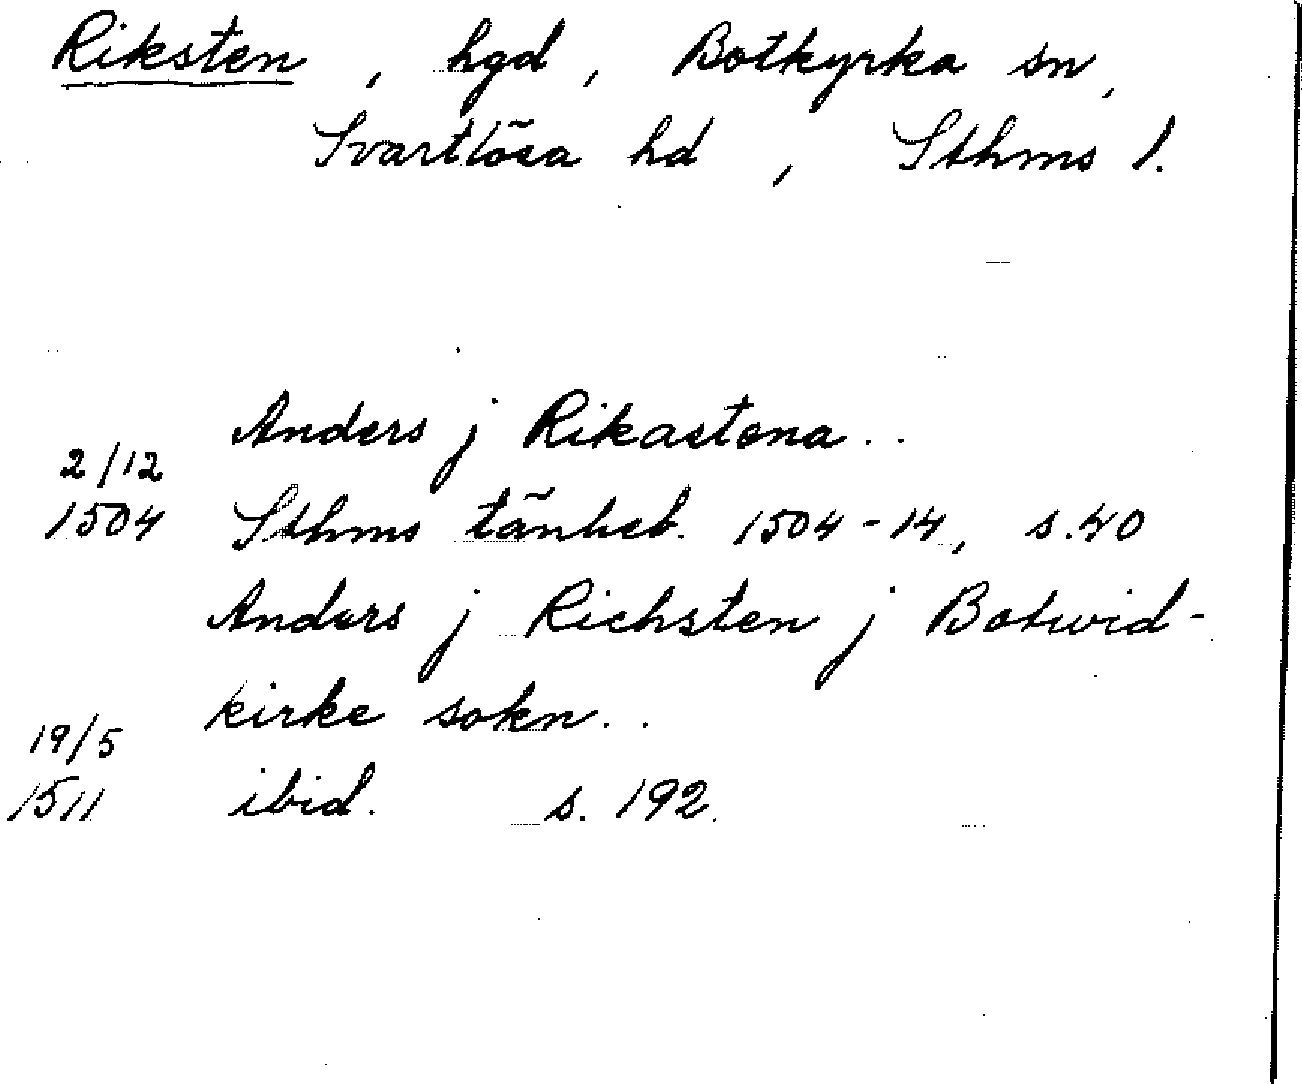 Riksten, hgd, Botkyrka sn,
Svartlösa hd, Sthms l.
Anders j Rikastena..
2/12
1504 Sthms tänkeb. 1504-14, s.40
Anders j Richsten j Botwid-
kirke sokn..
19/5
1511 ibid. s. 192.